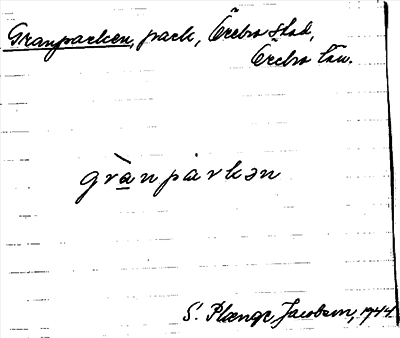 Granparken, park, Örebro stad,
Örebro län.
grànpàrkən
S. Plænge Jacobson, 1944